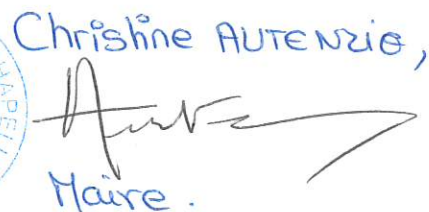 Christine AUTENZIO,
Maire.